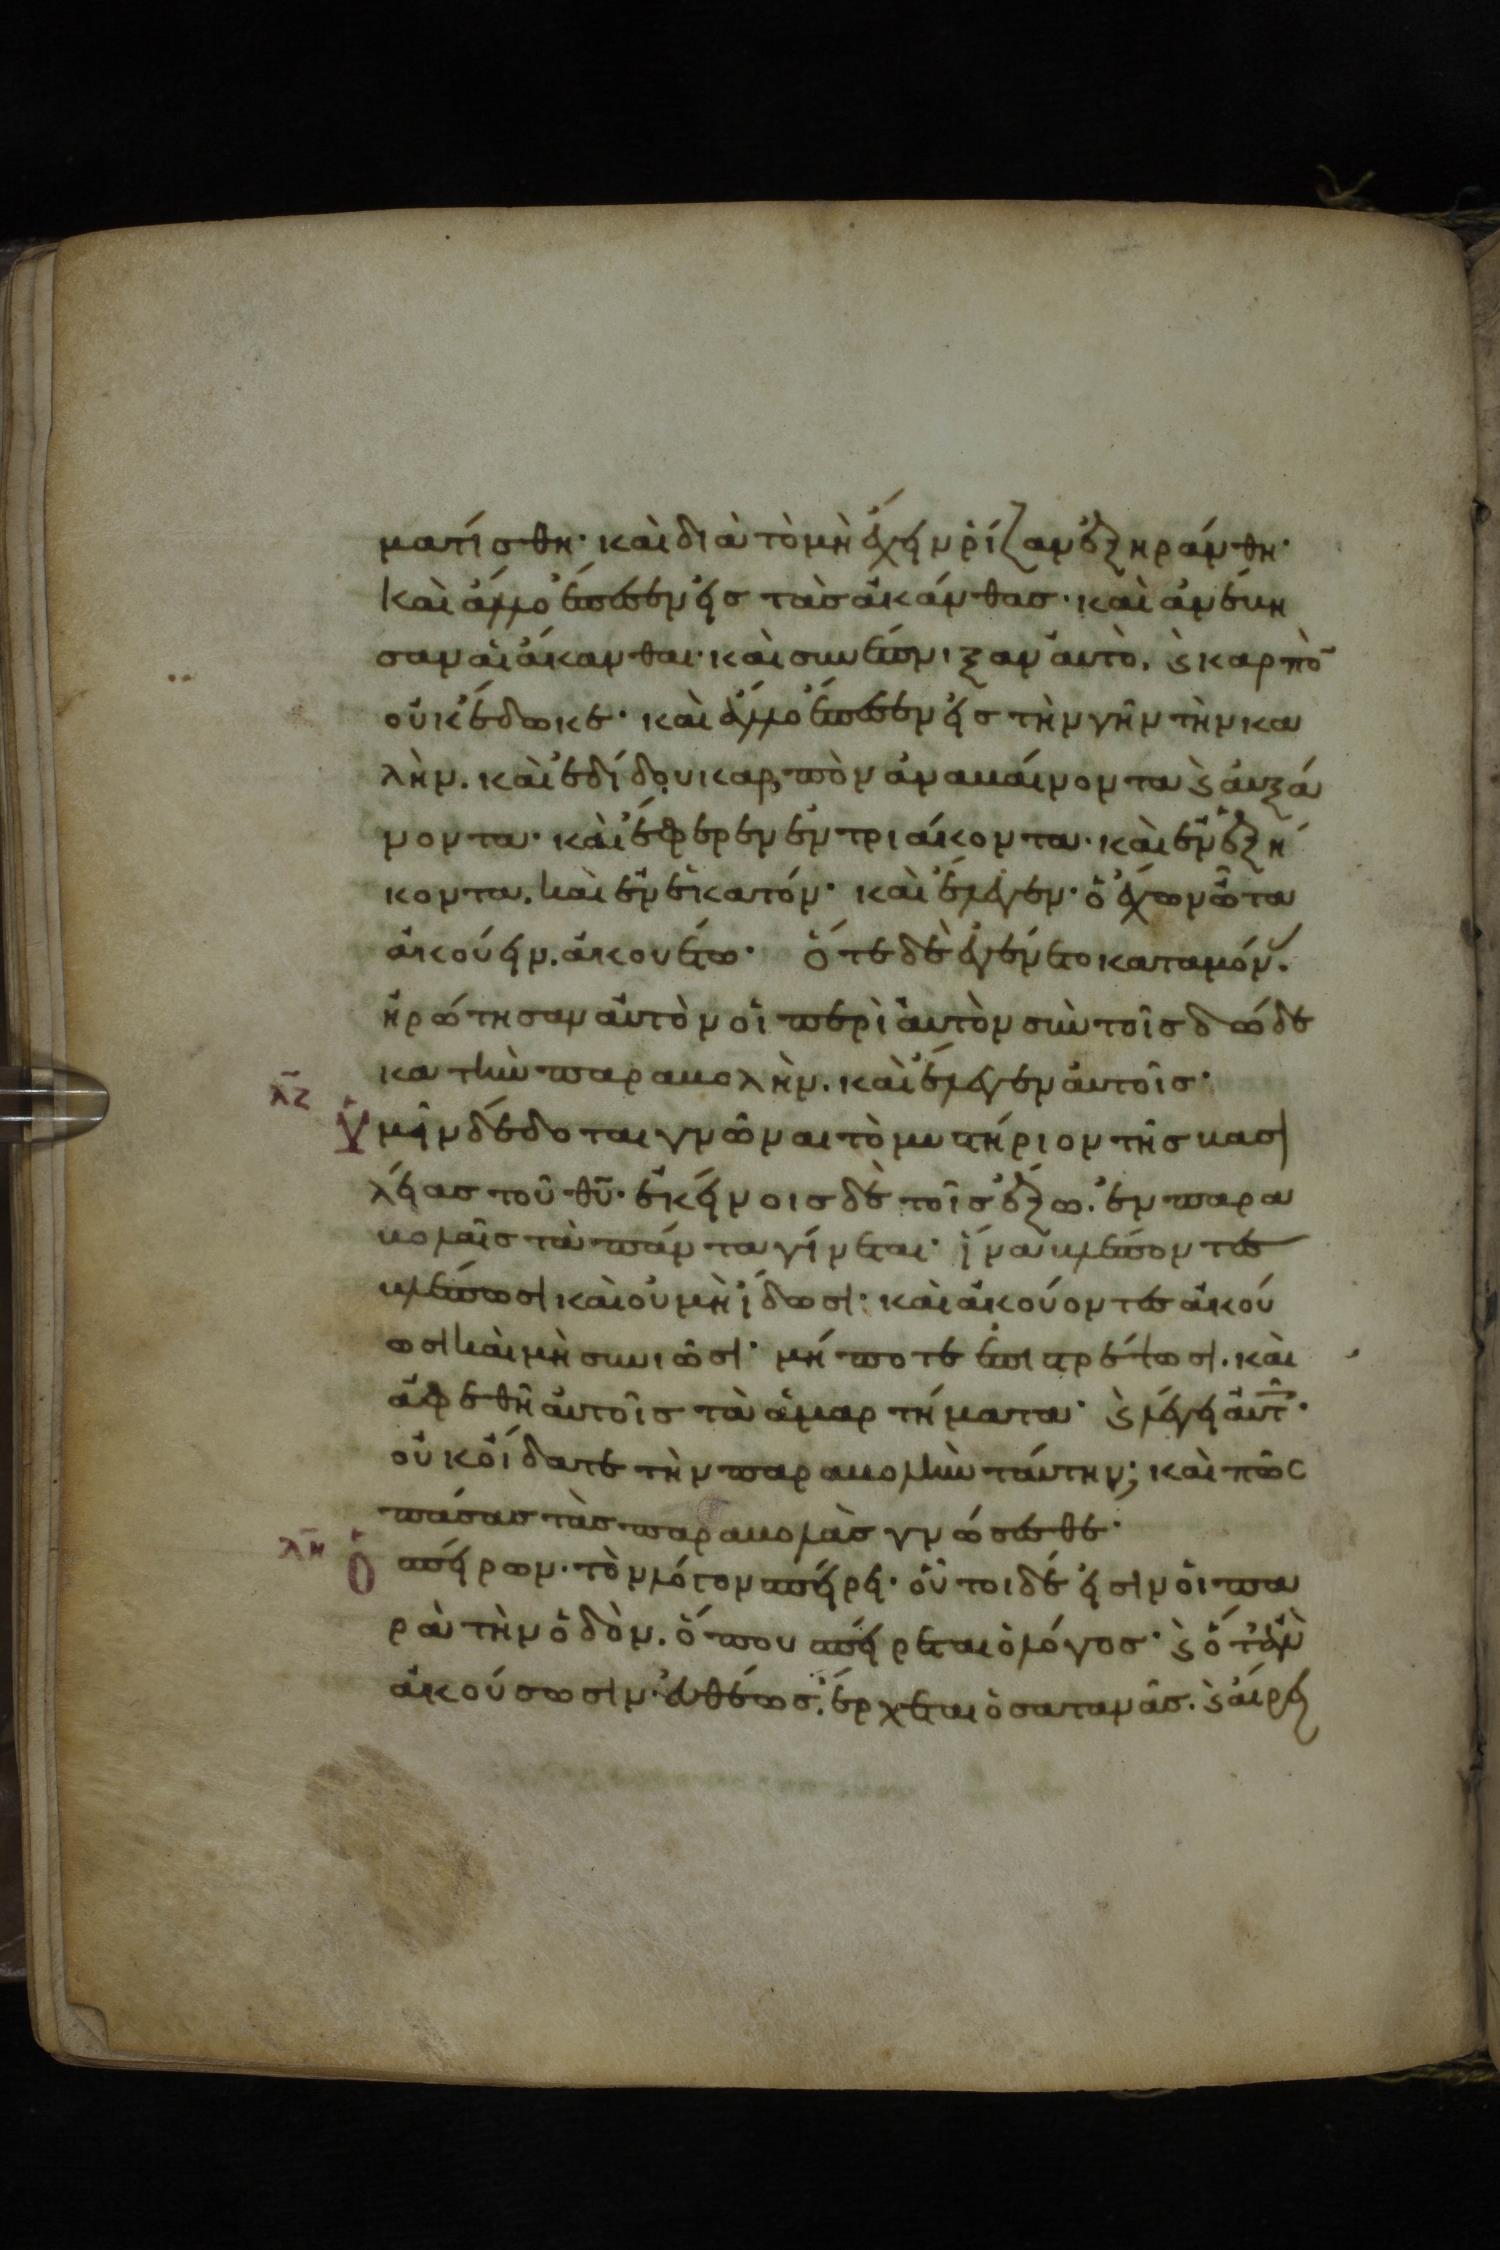 ματίσθη· καὶ διὰ τὸ μὴ ἔχειν ρίζαν ἐξηράνθη·
Καὶ ἄλλο ἔπεσεν εἰς τὰσ ἀκάνθας· καὶ ἀνέβη
σαν αἱ ἄκανθαι· καὶ συνέπνιξαν αὐτὸ. ϗ καρπὸ̅
οὐκ ἔδωκε· καὶ ἄλλο ἔπεσεν εἰς τὴν γῆν τὴν κα
λὴν. καὶ ἐδίδου καρπὸν ἀναβαίνοντα ϗ αὐξά
νοντα· καὶ ἔφερεν ἐν τριάκοντα· καὶ ἐν ἐξή
κοντα. καὶ ἐν ἑκατόν· καὶ ἔλεγεν· ὁ ἔχων ὦτα
ἀκούειν. ἀκουέτω· Ὅτε δὲ ἐγένετο καταμόν.
ἠρώτησαν αὐτὸν οἱ περὶ αὐτὸν σὺν τοῖς δώδε
κα τὴν παραβολὴν. καὶ ἔλεγεν αὐτοῖς·
λζ Ὑμῖν δέδοται γνῶναι τὸ μυστήριον τῆς βασι
λείας τοῦ θ̅υ̅· ἐκείνοις δὲ τοῖς ἔξω. ἐν παρα
βολαῖς τὰ πάντα γίνεται· ἵνα βλέποντες
βλέπωσι καὶ οὐ μὴ ἴδωσι· καὶ ἀκούοντες ἀκού
ωσι καὶ μὴ συνιῶσι· μή ποτε ἐπιστρέψωσι. καὶ
ἀφεθῆ αὐτοῖς τὰ ἁμαρτήματα· ϗ λέγει αὐτ̅·
οὐκ οἴδατε τὴν παραβολὴν ταύτην; καὶ πῶς
πάσας τὰς παραβολὰς γνώσεσθε·
λη Ὁ σπείρων· τὸν λόγον σπείρει· οὗτοι δέ εἰσιν οἱ πα
ρὰ τὴν ὁδὸν. ὅπου σπείρεται ὁ λόγος· ϗ ὅταν
ἀκούσωσιν· εὐθέως. ἔρχεται ὁ σατανᾶς. ϗ αἴρει